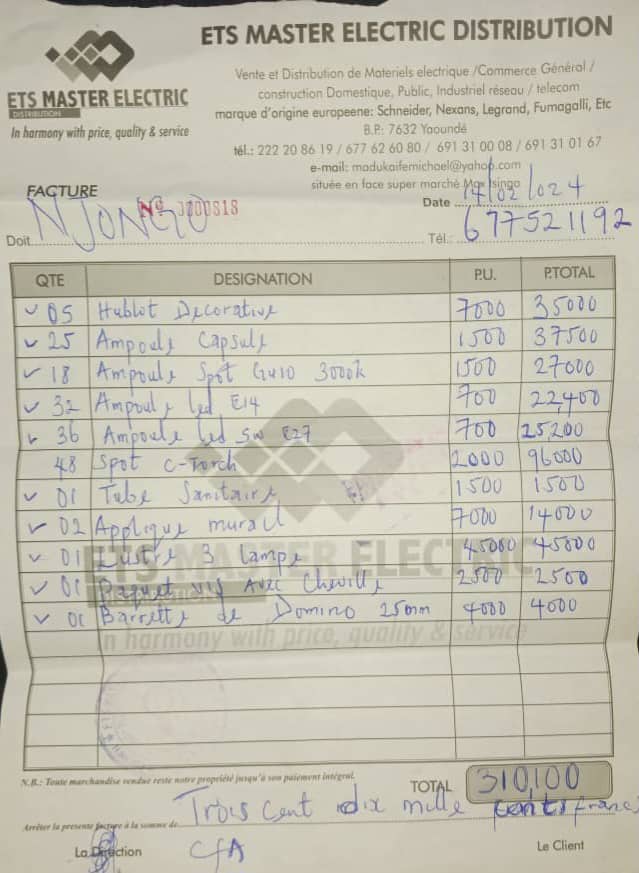 ETS MASTER ELECTRIC DISTRIBUTION
Vente et Distribution de Materiels electrique /Commerce Général /
construction Domestique, Public, Industriel réseau / telecom
marque d'origine europeene: Schneider, Nexans, Legrand, Fumagalli, Etc
B.P.: 7632 Yaoundé
tél.: 222 20 86 19 / 677 62 60 80 / 691 31 00 08 / 691 31 01 67
e-mail: madukaifemichael@yahoo.com
située en face super marché
ETS MASTER ELECTRIC
DISTRIBUTION
In harmony with price, quality & service
FACTURE
Date 14/02/024
Doit NJONGO
Tél.: 677521192
QTE DESIGNATION P.U. P.TOTAL
05 Hublot Decorative 7000 35000
25 Ampoule Capsule 1500 37500
18 Ampoule Spot GU10 3000k 1500 27000
32 Ampoule led E14 700 22,400
36 Ampoule led 5w E27 700 25,200
48 Spot C-Torch 2000 96000
01 Tube Sanitaire 1500 1500
02 Applique murall 7000 14000
01 Lustre 3 lampe 45000 45000
01 Paquet vis Avec Cheville 2500 2500
01 Barrette de Domino 25mm 4000 4000
ETS MASTER ELECTRIC
In harmony with price, quality & service
N.B.: Toute marchandise vendue reste notre propriété jusqu'à son paiement intégral.
TOTAL 310,100
Arrêter la presente facture à la somme de Trois cent dix mille cents franc
CFA
La Direction
Le Client